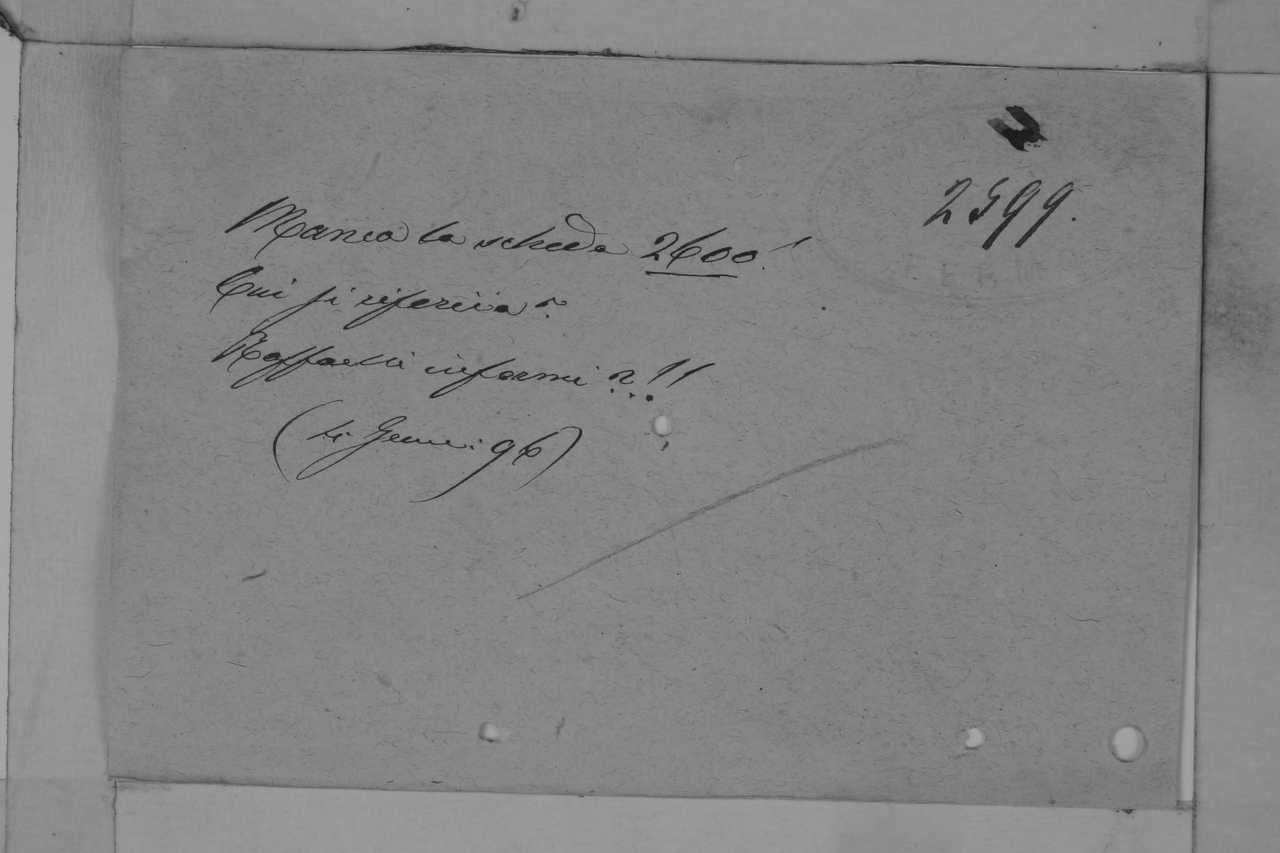 2599.
Manca la scheda 2600!
Cui si riferiva?
Raffaelli informi?..!!
(4 Genn: 96)